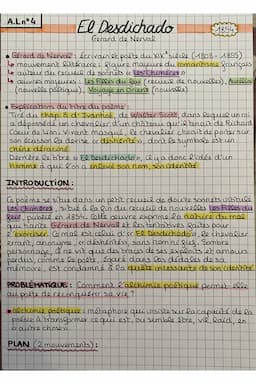 A.L n°4
El Desdichado
Gérard de Nerval
1854
• Gérard de Nerval : écrivain et poète du XIXe siècle (1808 - 1855)
↳ mouvement littéraire : figure majeure du romantisme français
↳ auteur du recueil de sonnets « Les Chimères »
↳ œuvres majeures : Les Filles du feu (recueil de nouvelles), Aurélia
(nouvelle poétique), Voyage en Orient (nouvelle)
• Explication du titre du poème :
Tiré du chap. 8 d'Ivanhoé, de Walter Scott, dans lequel un roi
a dépossédé un chevalier d'un château que lui tenait de Richard
Cœur de Lion. Vivant masqué, le chevalier choisit de porter sur
son écusson la devise « déshérité », dont le symbole est un
chêne déraciné.
Derrière le titre « El Desdichado », il y a donc l'idée d'un
homme à qui l'on a enlevé son nom, son identité
INTRODUCTION :
Ce poème se situe dans un petit recueil de douze sonnets intitulé
Les Chimères, situé à la fin du recueil de nouvelles Les Filles du
feu, publié en 1854. Cette œuvre exprime la nature du mal
que hante Gérard de Nerval et les tentatives faites pour
l'exorciser. Ce mal est celui d'« El Desdichado », le chevalier
errant, anonyme, « déshérité », sans nom ni fief. Sombre
personnage, il ne vit que des traces de ses exploits et amours
perdus, comme le poète, égaré dans les dédales de sa
mémoire, est condamné à la quête incessante de son identité
PROBLÉMATIQUE : Comment l'alchimie poétique permet-elle
au poète de reconquérir sa vie ?
• alchimie poétique : métaphore qui insiste sur la capacité de la
poésie à transformer ce qui est, ou semble être, vil, laid, en
autre chose.
PLAN (2 mouvements) :